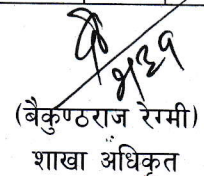 (बैकुण्ठराज रेग्मी)
शाखा अधिकृत